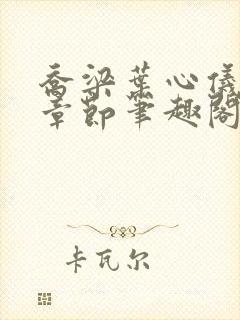 乔梁叶心仪
章节笔趣阁
卡瓦尔